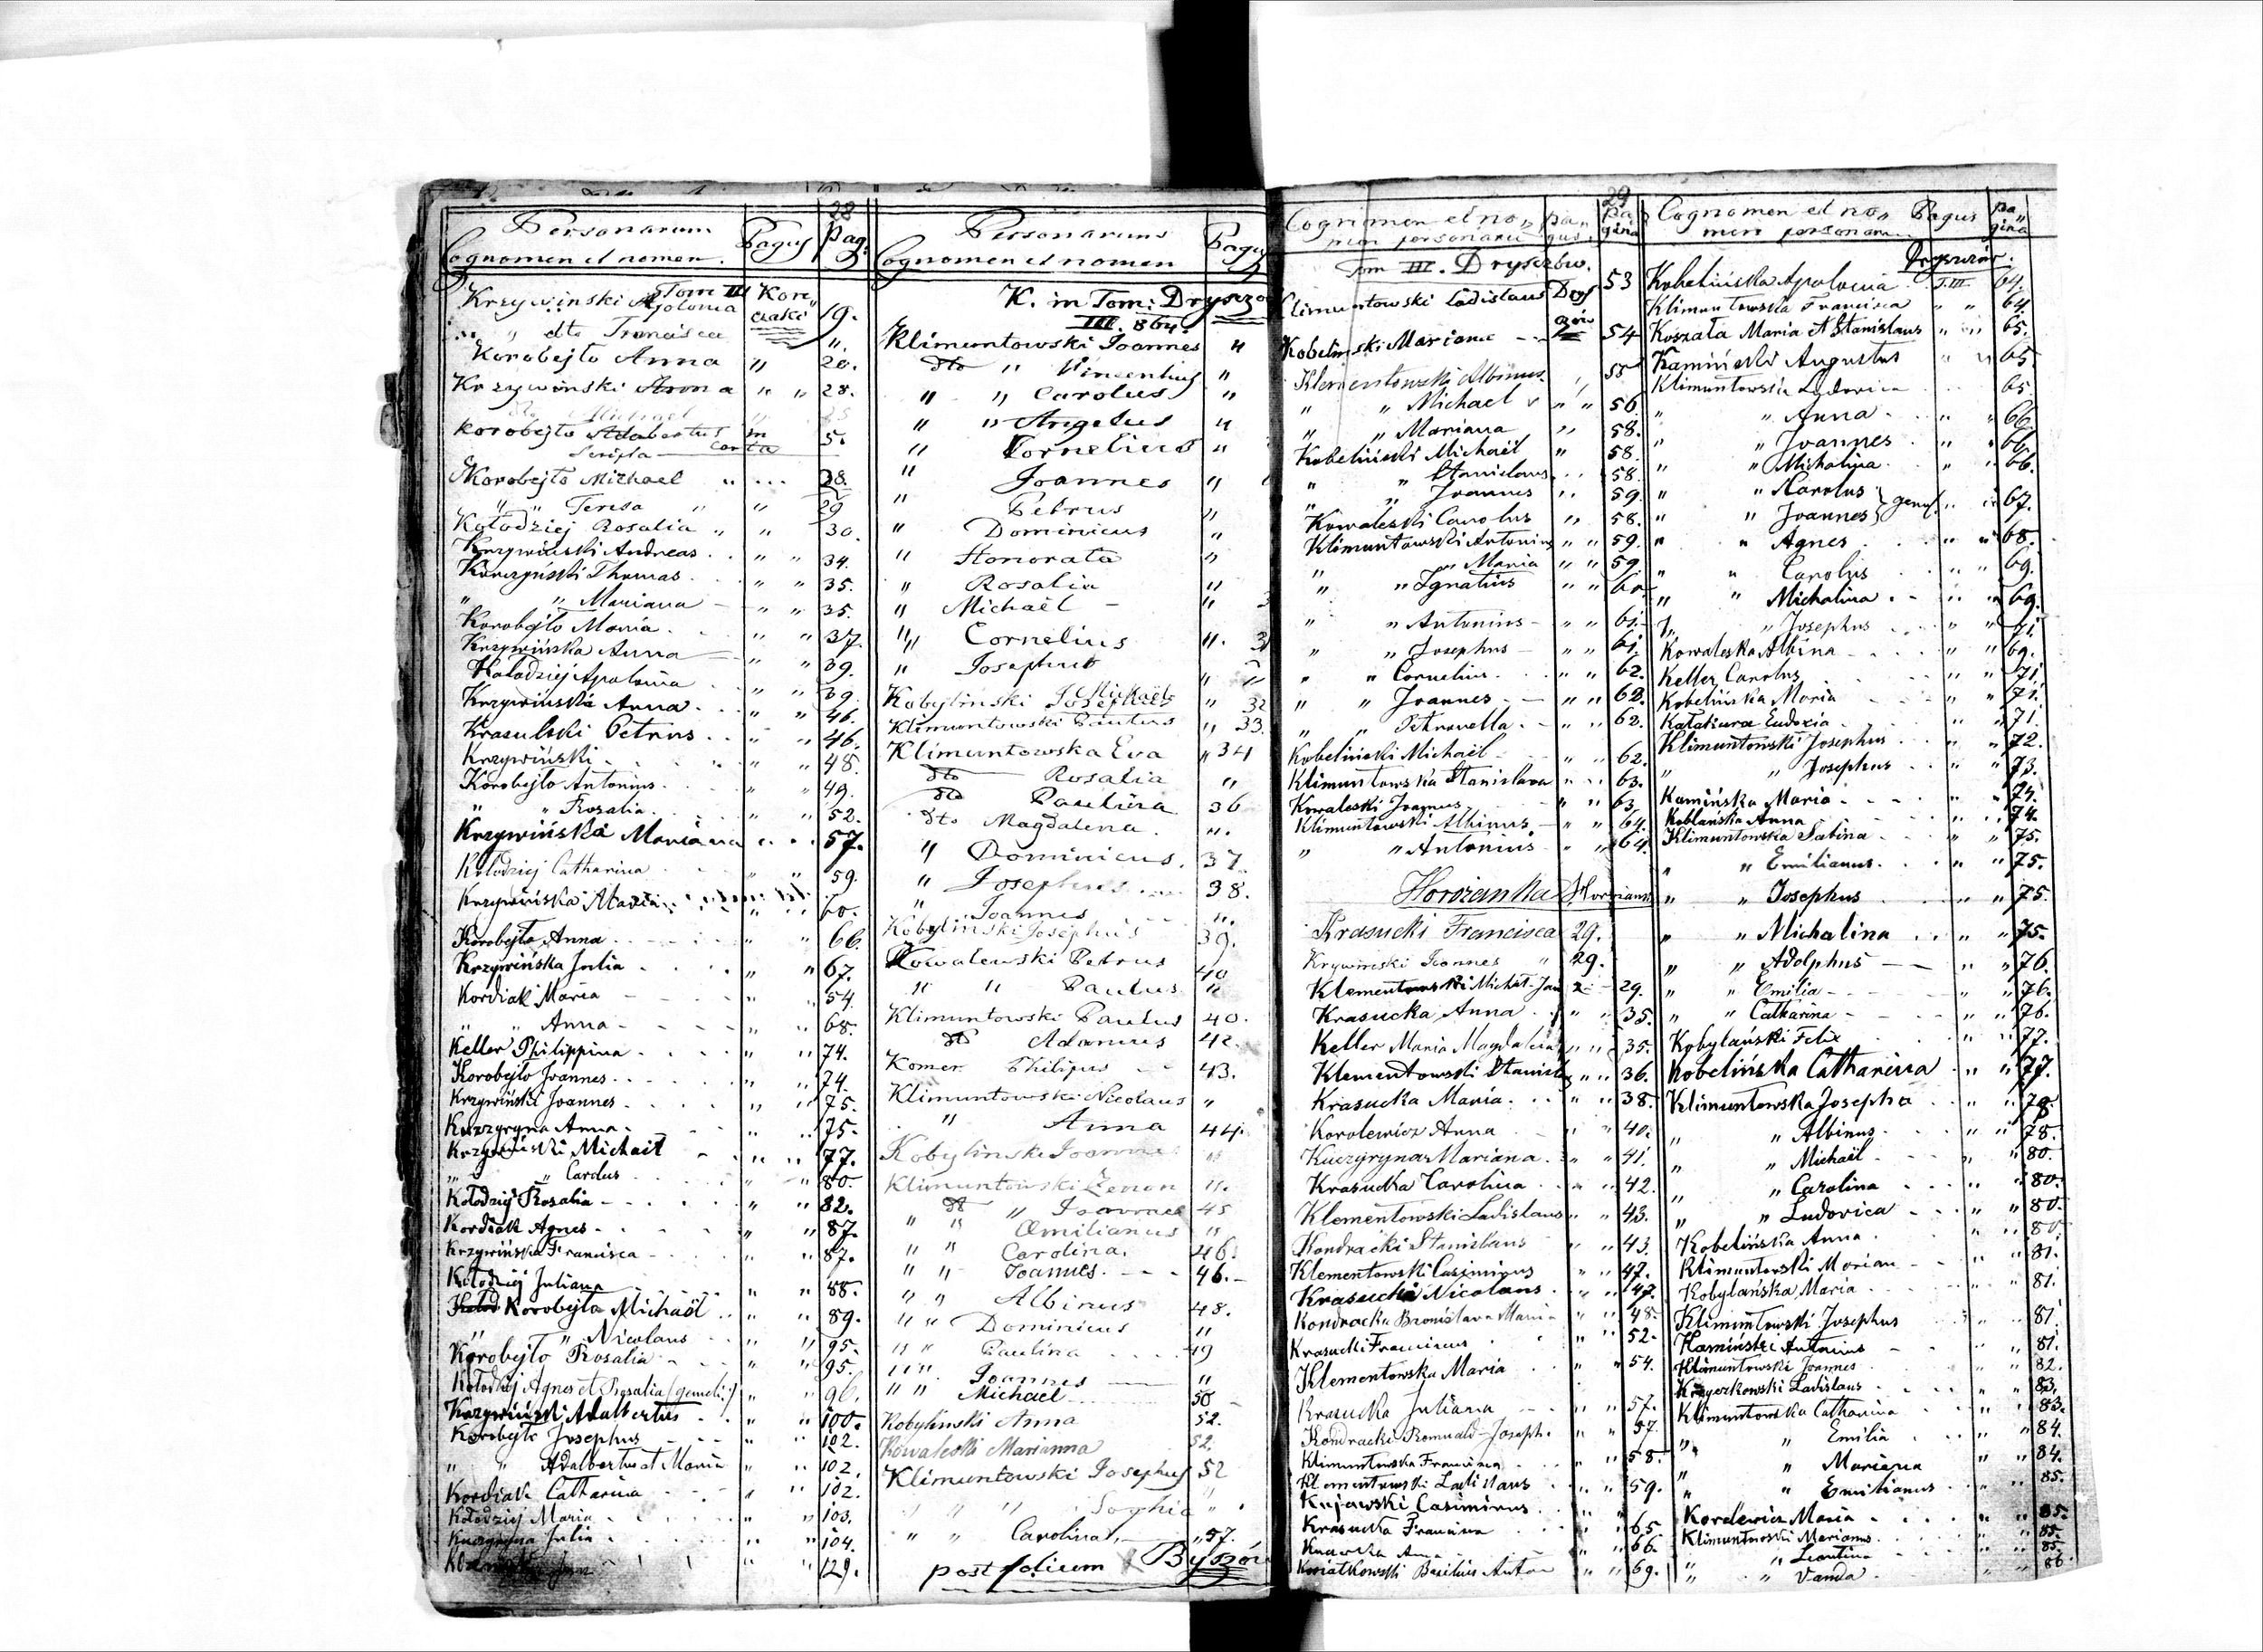 28
Personarum
Cognomen et nomen.
Pagus
pag.
Tom III
Kor
czaki
Krzywinski Apolonia 19.
" " dto Francisca ".
Korobejło Anna " 20.
Krzywinski Anna " " 28.
dto Michael
Korobejło Adabertus in 5.
Scripta carta
Korobejło Michael " ... 28.
" " Teresa " " 29
Kołodziej Rosalia " " 30.
Krzywiński Andreas . . " " 34.
Korczyński Thomas . " " 35.
" " Mariana - " " 35.
Korobejło Maria . " " 37.
Krzywińska Anna - " " 39.
Kołodziej Apolonia . " " 39.
Krzywińska Anna . . " " 46.
Krasulski Petrus . . " " 46.
Krzywiński . . . " " 48.
Korobejło Antonius . . " " 49.
" " Rozalia . . " " 52.
Krzywińska Mariana . . . 57.
Kołodziej Catharina . . " " 59.
Krzywińska Maria " " 60.
Korobejło Anna . . . " " 66.
Krzywińska Julia . . . " " 67.
Kordiak Maria - - - " " 54.
" " Anna - - - " " 68.
Keller Philippina . . . . " " 74.
Korobejło Joannes . . . " " 74.
Krzywiński Joannes . . . " " 75.
Kuczyryna Anna . . " " 75.
Krzywiński Michael - " " 77.
" " Carolus . . " " 80.
Kołodziej Rosalia - . . . " " 82.
Kordiak Agnes - . . - " " 87.
Krzywińska Francisca - . . . " " 87.
Kołodziej Juliana " " 88.
Korobejło Michaël . . " " 89.
" " Nicolaus . . " " 95.
Korobejło Rosalia - . " " 95.
Kołodziej Agnes et Rosalia (gemeli:) " " 96.
Krzywiński Adalbertus . . " " 100.
Korobejło Josephus - - - " " 102.
" " Adalbertus et Maria " " 102.
Kordiak Catharina . - . " " 102.
Kołodziej Maria . . . . " " 103.
Kuczyryna Julia . . . . " " 104.
" " 129.
Personarum
Cognomen et nomen
Pagus
K. in Tom: Drysz
III. 864.
Klimuntowski Joannes "
dto " Vincentius "
" " Carolus "
" " Angelus "
" Cornelius "
" Joannes "
" Petrus "
" Dominicus "
" Honorata "
" Rosalia "
" Michaël - "
" " Cornelius ".
" Josephus
Kobyliński Michaël " 32
Klimuntowski Paulus " 33.
Klimuntowska Eva " 34
dto Rosalia "
dto Paulina 36
dto Magdalena . ".
" Dominicus . 37.
" Josephus .... 38.
" Joannes . - - ".
Kobyliński Josephus 39.
Kowalewski Petrus 40
" " Paulus "
Klimuntowski Paulus 40.
dto Adamus 42.
Komer Philipus - - 43.
Klimuntowski Nicolaus "
" Anna 44.
Kobylinski Joannes "
Klimuntowski Zenon ".
dto " 45
" " Œmilianus "
" " Carolina . 46.
" " Joannes . - - - 46. -
" " Albinus 48.
" " Dominicus "
" " Paulina . . . . 49
" " Joannes - "
" " Michael - - 50
Kobylinski Anna 52.
Kowaleski Marianna 52.
Klimuntowski Josephus 52
" " Sophia "
" " Carolina . - " 57.
post folium Byszów
29
Cognomen et no"
men personaru
pa"
gus.
pa
gina
Tom III. Dryszczów.
Klimuntowski Ladislaus Drysz 53
czów
Kobelinski Mariana - - 54
Klementowski Albinus . " 55
" " Michael " " 56.
" " Mariana " 58.
Kobeliński Michaël " 58.
" " Stanislaus . . . 58.
" " Joannes " 59.
Kowaleski Carolus " 58.
Klimuntowski Antonius " " 59.
" " Maria " " 59.
" " Ignatius " " 60.
" " Antonius - " " 61.
" " Josephus - " " 61.
" " Cornelius . . " " 62.
" " Joannes - - " " 62.
" " Petronella . - " " 62.
Kobeliński Michaël - - 62.
Klimuntowska Stanislava " " 63.
Kowaleski Joannes . " " 63.
Klimuntowski Albinus - " " 64.
" " Antonius . " " 64.
Horożanka
Krasucki Francisca 29.
Krywinski Joannes " 29.
Klementowski 29.
Krasucka Anna . . " " 35.
Keller Maria Magdalena " " 35.
Klementowski Stanislaus " " 36.
Krasucka Maria . . . " " 38.
Korolewicz Anna . - " " 40.
Kuczyryna Mariana . " " 41.
Krasucka Carolina . . " " 42.
Klementowski Ladislaus " " 43.
Kondracki Stanislaus " " 43.
Klementowski Casimirus " " 47.
Krasucki Nicolaus . " " 47.
Kondracka Bronislava Maria " " 48.
Krasucki Franciscus . . " " 52.
Klementowska Maria . . " " 54.
Krasucka Juliana - - . " " 57.
Kondracki Romuald-Joseph . " " 57.
Klimuntowska Francisca . . . " " 58.
Klementowski Ladislaus . . " " 59.
Kujawski Casimirus . . . "
Krasucka Francisca . . . " " 65.
" " 66.
Kwiatkowski Basilius Anton " " 69.
Cognomen et no"
men personaru
Pagus
pa"
gina
Dryszczów.
Kobelińska Apolonia . T.III. 64.
Klimuntowska Francisca " " 64.
Koszała Maria et Stanislaus " " 65.
Kamiński Augustus " " 65.
Klimuntowska Ludovica . . . 65.
" " Anna . . " " 66.
" " Joannes . " " 66.
" " Michalina . . " " 66.
" " Karolus
" " Joannes } gemel. " " 67.
" " Agnes . . " " 68.
" " Carolus . . " " 69.
" " Michalina . . . " " 69.
" " Josephus . . . " " 71.
Kowaleska Albina - . . . " " 69.
Keller Carolus . . . " " 71.
Kobelińska Maria . . . " " 71.
Katakura Eudoxia - . . . " " 71.
Klimuntowski Josephus . . . " " 72.
" " Josephus . . . " " 73.
Kamińska Maria - . - . " " 74.
Koblańska Anna . " " 74.
Klimuntowska Sabina . . . " " 75.
" " Emilianus . . . " " 75.
" " Josephus . . . " " 75.
" " Michalina . . . " " 75.
" " Adolphus - - " " 76.
" " Emilia - . . - " " 76.
" " Catharina - - - " " 76.
Kobylański Felix . . " " 77.
Kobelińska Catharina . . " " 77.
Klimuntowska Josepha . . " " 78.
" " Albinus . . " " 78.
" " Michaël . - " " 80.
" " Carolina . . " " 80.
" " Ludovica . - - " " 80.
Kobelińska Anna . . " " 80.
Klimuntowski Marian - - " " 81.
Kobylańska Maria . . . " " 81.
Klimuntowski Josephus . . " " 81.
Kamiński Antonius - " " 81.
Klimuntowski Joannes . . . " " 82.
Krzyczkowski Ladislaus . . " " 83.
Klimuntowska Catharina . . " " 83.
" " Emilia . . . " " 84.
" " Mariana . " " 84.
" " Emilianus . . . " " 85.
Korolewicz Maria . . . " " 85.
Klimuntowski Marianus . . . " " 85.
" " Leontina . . " " 85.
" " Vanda . . " " 86.